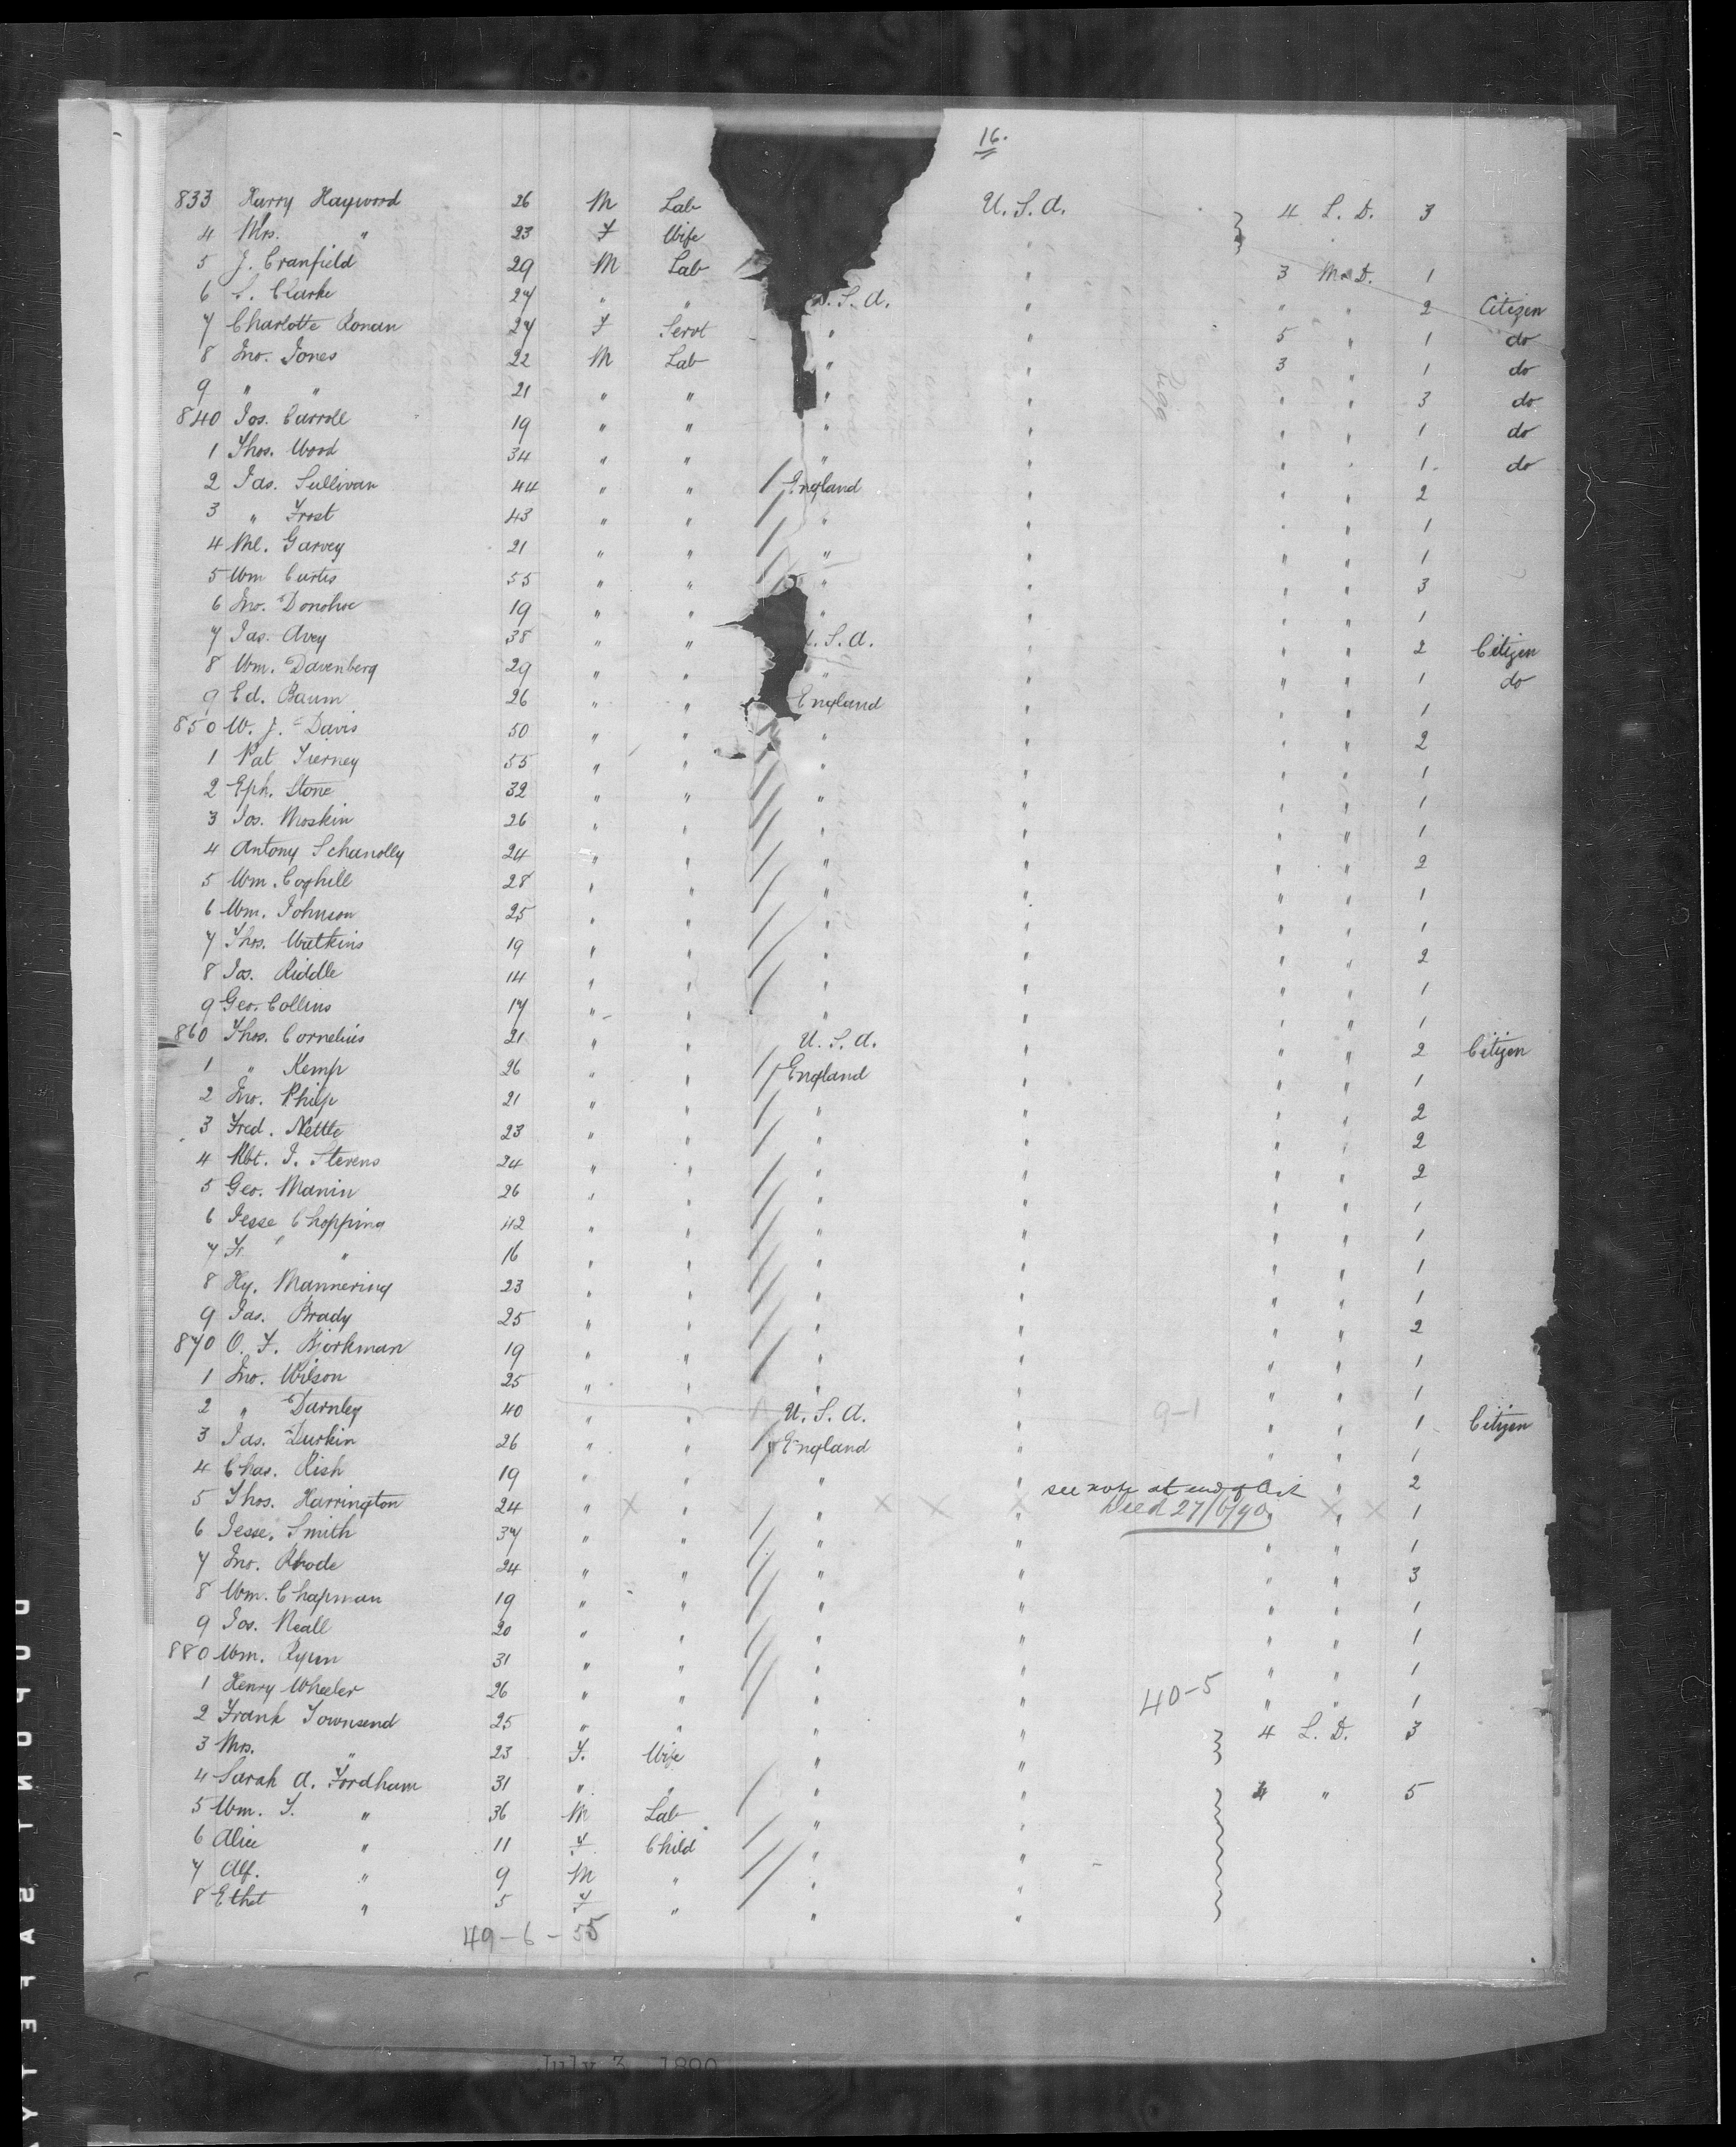 16.
833 Harry Haywood 26 M Lab U.S.A. 4 L.D. 3
4 Mrs. " 23 F Wife "
5 J. Cranfield 29 M Lab " 3 M.D. 1
6 C. Clarke 27 " " U.S.A. " " " 2 Citizen
7 Charlotte Ronan 27 F Servt " " 5 " 1 do
8 Jno. Jones 22 M Lab " " 3 " 1 do
9 " " 21 " " " " " " 3 do
840 Jos. Carroll 19 " " " " " " 1 do
1 Thos. Wood 34 " " " " " " 1 do
2 Jas. Sullivan 44 " " England " " " 2
3 " Frost 43 " " " " " " 1
4 Ml. Garvey 21 " " " " " " 1
5 Wm Curtis 55 " " " " " " 3
6 Jno. Donohoe 19 " " " " " " 1
7 Jas. Avey 38 " " U.S.A. " " " 2 Citizen
8 Wm. Davenberg 29 " " " " " " 1 do
9 Ed. Baum 26 " " England " " " 1
850 W. J. Davis 50 " " " " " " 2
1 Pat Tierney 55 " " " " " " 1
2 Eph. Stone 32 " " " " " " 1
3 Jos. Moskin 26 " " " " " " 1
4 Antony Schanolly 24 " " " " " " 2
5 Wm. Coghill 28 " " " " " " 1
6 Wm. Johnson 25 " " " " " " 1
7 Thos. Watkins 19 " " " " " " 2
8 Jas. Riddle 14 " " " " " " 1
9 Geo. Collins 17 " " " " " " 1
860 Thos. Cornelius 21 " " U.S.A. " " " 2 Citizen
1 " Kemp 26 " " England " " " 1
2 Jno. Philp 21 " " " " " " 2
3 Fred. Nettle 23 " " " " " " 2
4 Rbt. J. Stevens 24 " " " " " " 2
5 Geo. Manin 26 " " " " " " 1
6 Jesse Chopping 42 " " " " " " 1
7 Fr. " 16 " " " " " " 1
8 Hy. Mannering 23 " " " " " " 1
9 Jas. Brady 25 " " " " " " 2
870 O. F. Bjorkman 19 " " " " " " 1
1 Jno. Wilson 25 " " " " " " 1
2 " Darnley 40 " " U.S.A. " 9-1 " " 1 Citizen
3 Jas. Durkin 26 " " England " " " 1
4 Chas. Rish 19 " " " " see note at end of list " 2
5 Thos. Harrington 24 " X " X " X X X " Died 27/6/90 " X " X 1
6 Jesse Smith 37 " " " " " " 1
7 Jno. Rhode 24 " " " " " " 3
8 Wm. Chapman 19 " " " " " " 1
9 Jos. Neall 20 " " " " " " 1
880 Wm. Ryan 31 " " " " " " 1
1 Henry Wheeler 26 " " " " 40-5 " " 1
2 Frank Townsend 25 " " " " 4 L.D. 3
3 Mrs. " 23 F. Wife " "
4 Sarah A. Fordham 31 " " " " 4 " 5
5 Wm. T. " 36 M Lab " "
6 Alice " 11 F Child " "
7 Alf. " 9 M " " "
8 Ethel " 5 F " " "
49-6-55
July 3, 1890